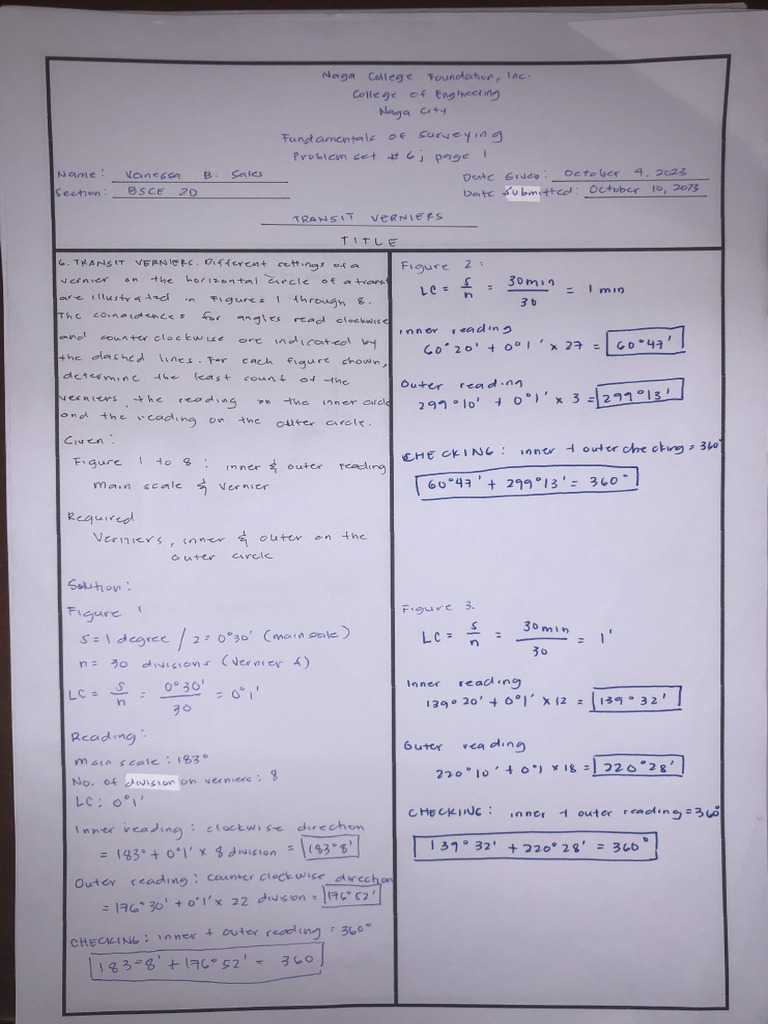 Naga College Foundation, Inc.
College of Engineering
Naga City
Fundamentals of Surveying
Problem set # 6; page 1
Name: Vanessa B. Sales
Date Given: October 9, 2023
Section: BSCE 2D
Date Submitted: October 10, 2023
TRANSIT VERNIERS
TITLE
6. TRANSIT VERNIERS. Different settings of a
vernier on the horizontal circle of a transit
are illustrated in Figures 1 through 8.
The coincidences for angles read clockwise
and counterclockwise are indicated by
the dashed lines. For each figure shown,
determine the least count of the
verniers, the reading on the inner circle
and the reading on the outer circle.
Given:
Figure 1 to 8: inner & outer reading
main scale & vernier
Required
Verniers, inner & outer on the
outer circle
Solution:
Figure 1
S = 1 degree / 2 = 0°30' (main scale)
n = 30 divisions (vernier)
LC = S/n = 0°30'/30 = 0°1'
Reading:
main scale: 183°
No. of division on verniers: 8
LC: 0°1'
Inner reading: clockwise direction
= 183° + 0°1' × 8 division = 183°8'
Outer reading: counter clockwise direction
= 176°30' + 0°1' × 22 division = 176°52'
CHECKING: inner + outer reading = 360°
183°8' + 176°52' = 360
Figure 2:
LC = S/n = 30min/30 = 1 min
inner reading
60°20' + 0°1' × 27 = 60°47'
Outer reading
299°10' + 0°1' × 3 = 299°13'
CHECKING: inner + outer checking = 360°
60°47' + 299°13' = 360°
Figure 3.
LC = S/n = 30min/30 = 1'
Inner reading
139°20' + 0°1' × 12 = 139°32'
Outer reading
220°10' + 0°1 × 18 = 220°28'
CHECKING: inner + outer reading = 360°
139°32' + 220°28' = 360°